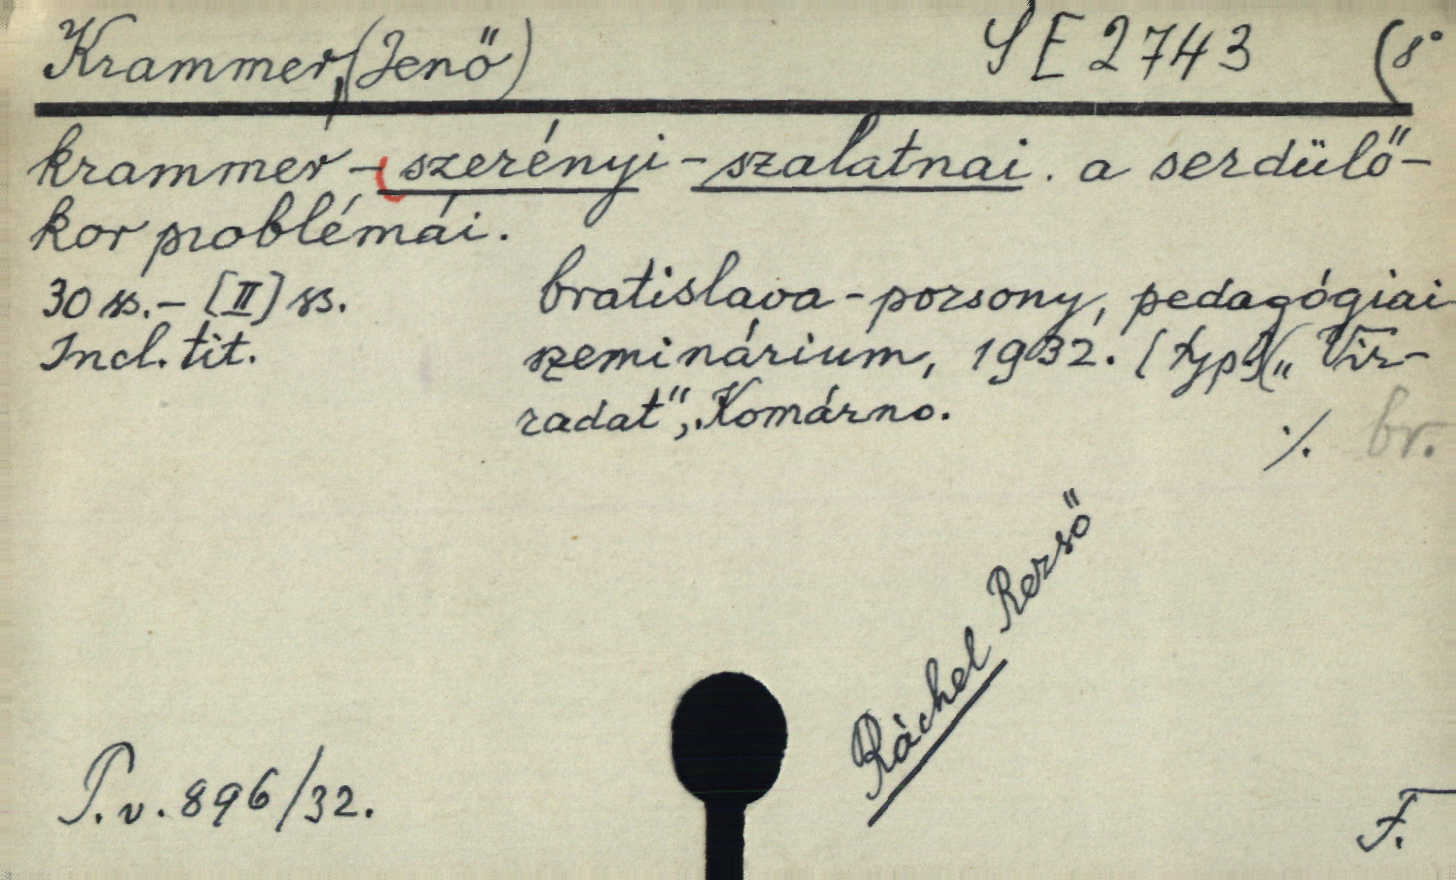 Krammer, (Jenő) SE 2743 (8°
krammer - szerényi - szalatnai. a serdülő-
kor problémái.
30 ss. - [II] ss. bratislava - pozsony, pedagógiai
Incl. tit. szeminárium, 1932. (typ.) („Vir-
radat”, Komárno.
./. br.
Ráchel Rezső
P.v. 896/32.
F.